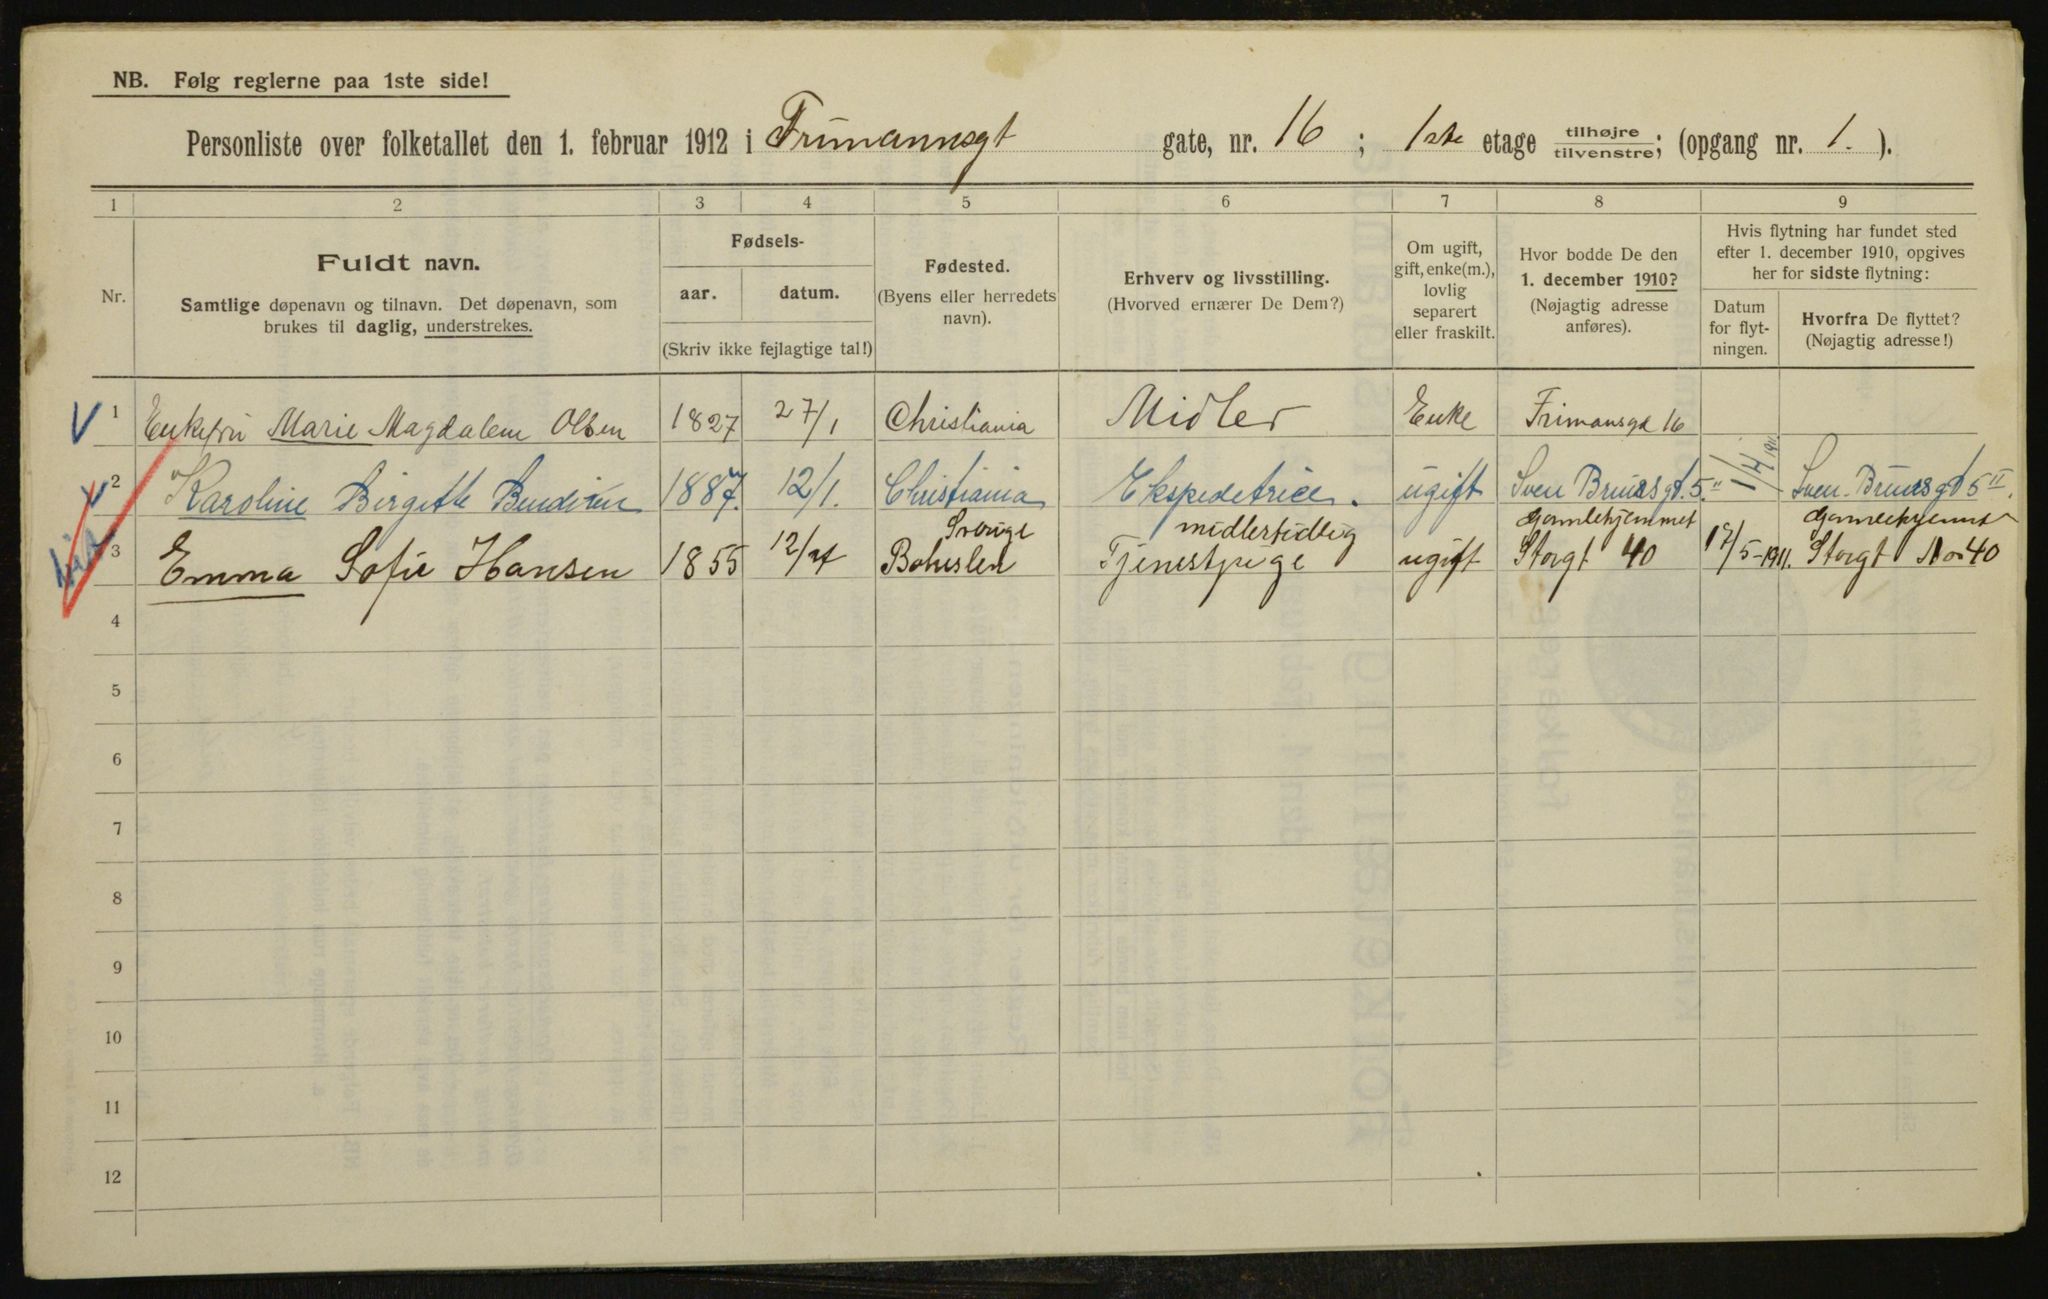 NB. Følg reglerne paa 1ste side!
Personliste over folketallet den 1. februar 1912 i Frimannsgt gate, nr. 16 ; 1ste etage tilhøjre tilvenstre; (opgang nr. 1. ).
1 2 3 4 5 6 7 8 9
Nr.
Fuldt navn.
Samtlige døpenavn og tilnavn. Det døpenavn, som
brukes til daglig, understrekes.
Fødsels-
aar. datum.
(Skriv ikke fejlagtige tal!)
Fødested.
(Byens eller herredets
navn).
Erhverv og livsstilling.
(Hvorved ernærer De Dem?)
Om ugift,
gift, enke(m.),
lovlig
separert
eller fraskilt.
Hvor bodde De den
1. december 1910?
(Nøjagtig adresse
anføres).
Hvis flytning har fundet sted
efter 1. december 1910, opgives
her for sidste flytning:
Datum
for flyt-
ningen.
Hvorfra De flyttet?
(Nøjagtig adresse!)
1 Enkefru Marie Magdalene Olsen 1827 27/1 Christiania Midler Enke Frimansgd 16
2 Karoline Birgitte 1887. 12/1. Christiania Ekspeditrice. ugift Sven Bruusgt. 5.II 1/4 1911 Sven Bruusgt 5 II.
3 Emma Sofie Hansen 1855 12/ Sverige Bohuslen midlertidlig Tjenestpige ugift Gamlehjemmet Storgt 40 /5-1911. Gamlehjemmet Storgt No 40
4
5
6
7
8
9
10
11
12